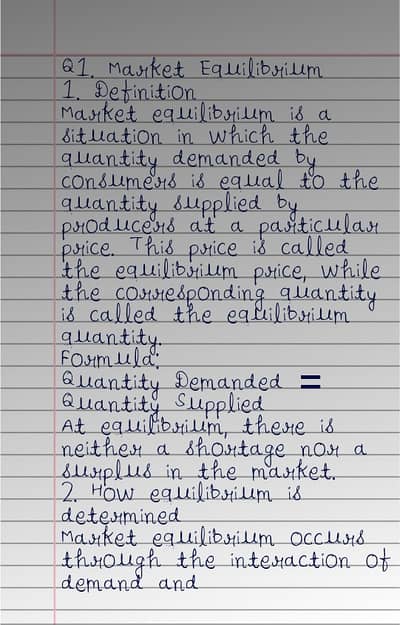 Q1. Market Equilibrium
1. Definition
Market equilibrium is a
situation in which the
quantity demanded by
consumers is equal to the
quantity supplied by
producers at a particular
price. This price is called
the equilibrium price, while
the corresponding quantity
is called the equilibrium
quantity.
Formula:
Quantity Demanded =
Quantity Supplied
At equilibrium, there is
neither a shortage nor a
surplus in the market.
2. How equilibrium is
determined
Market equilibrium occurs
through the interaction of
demand and